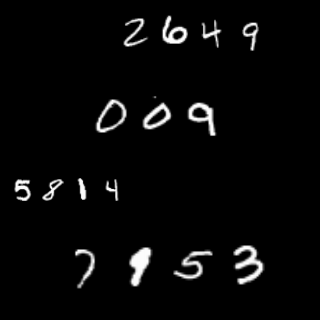 2649
009
5814
7953